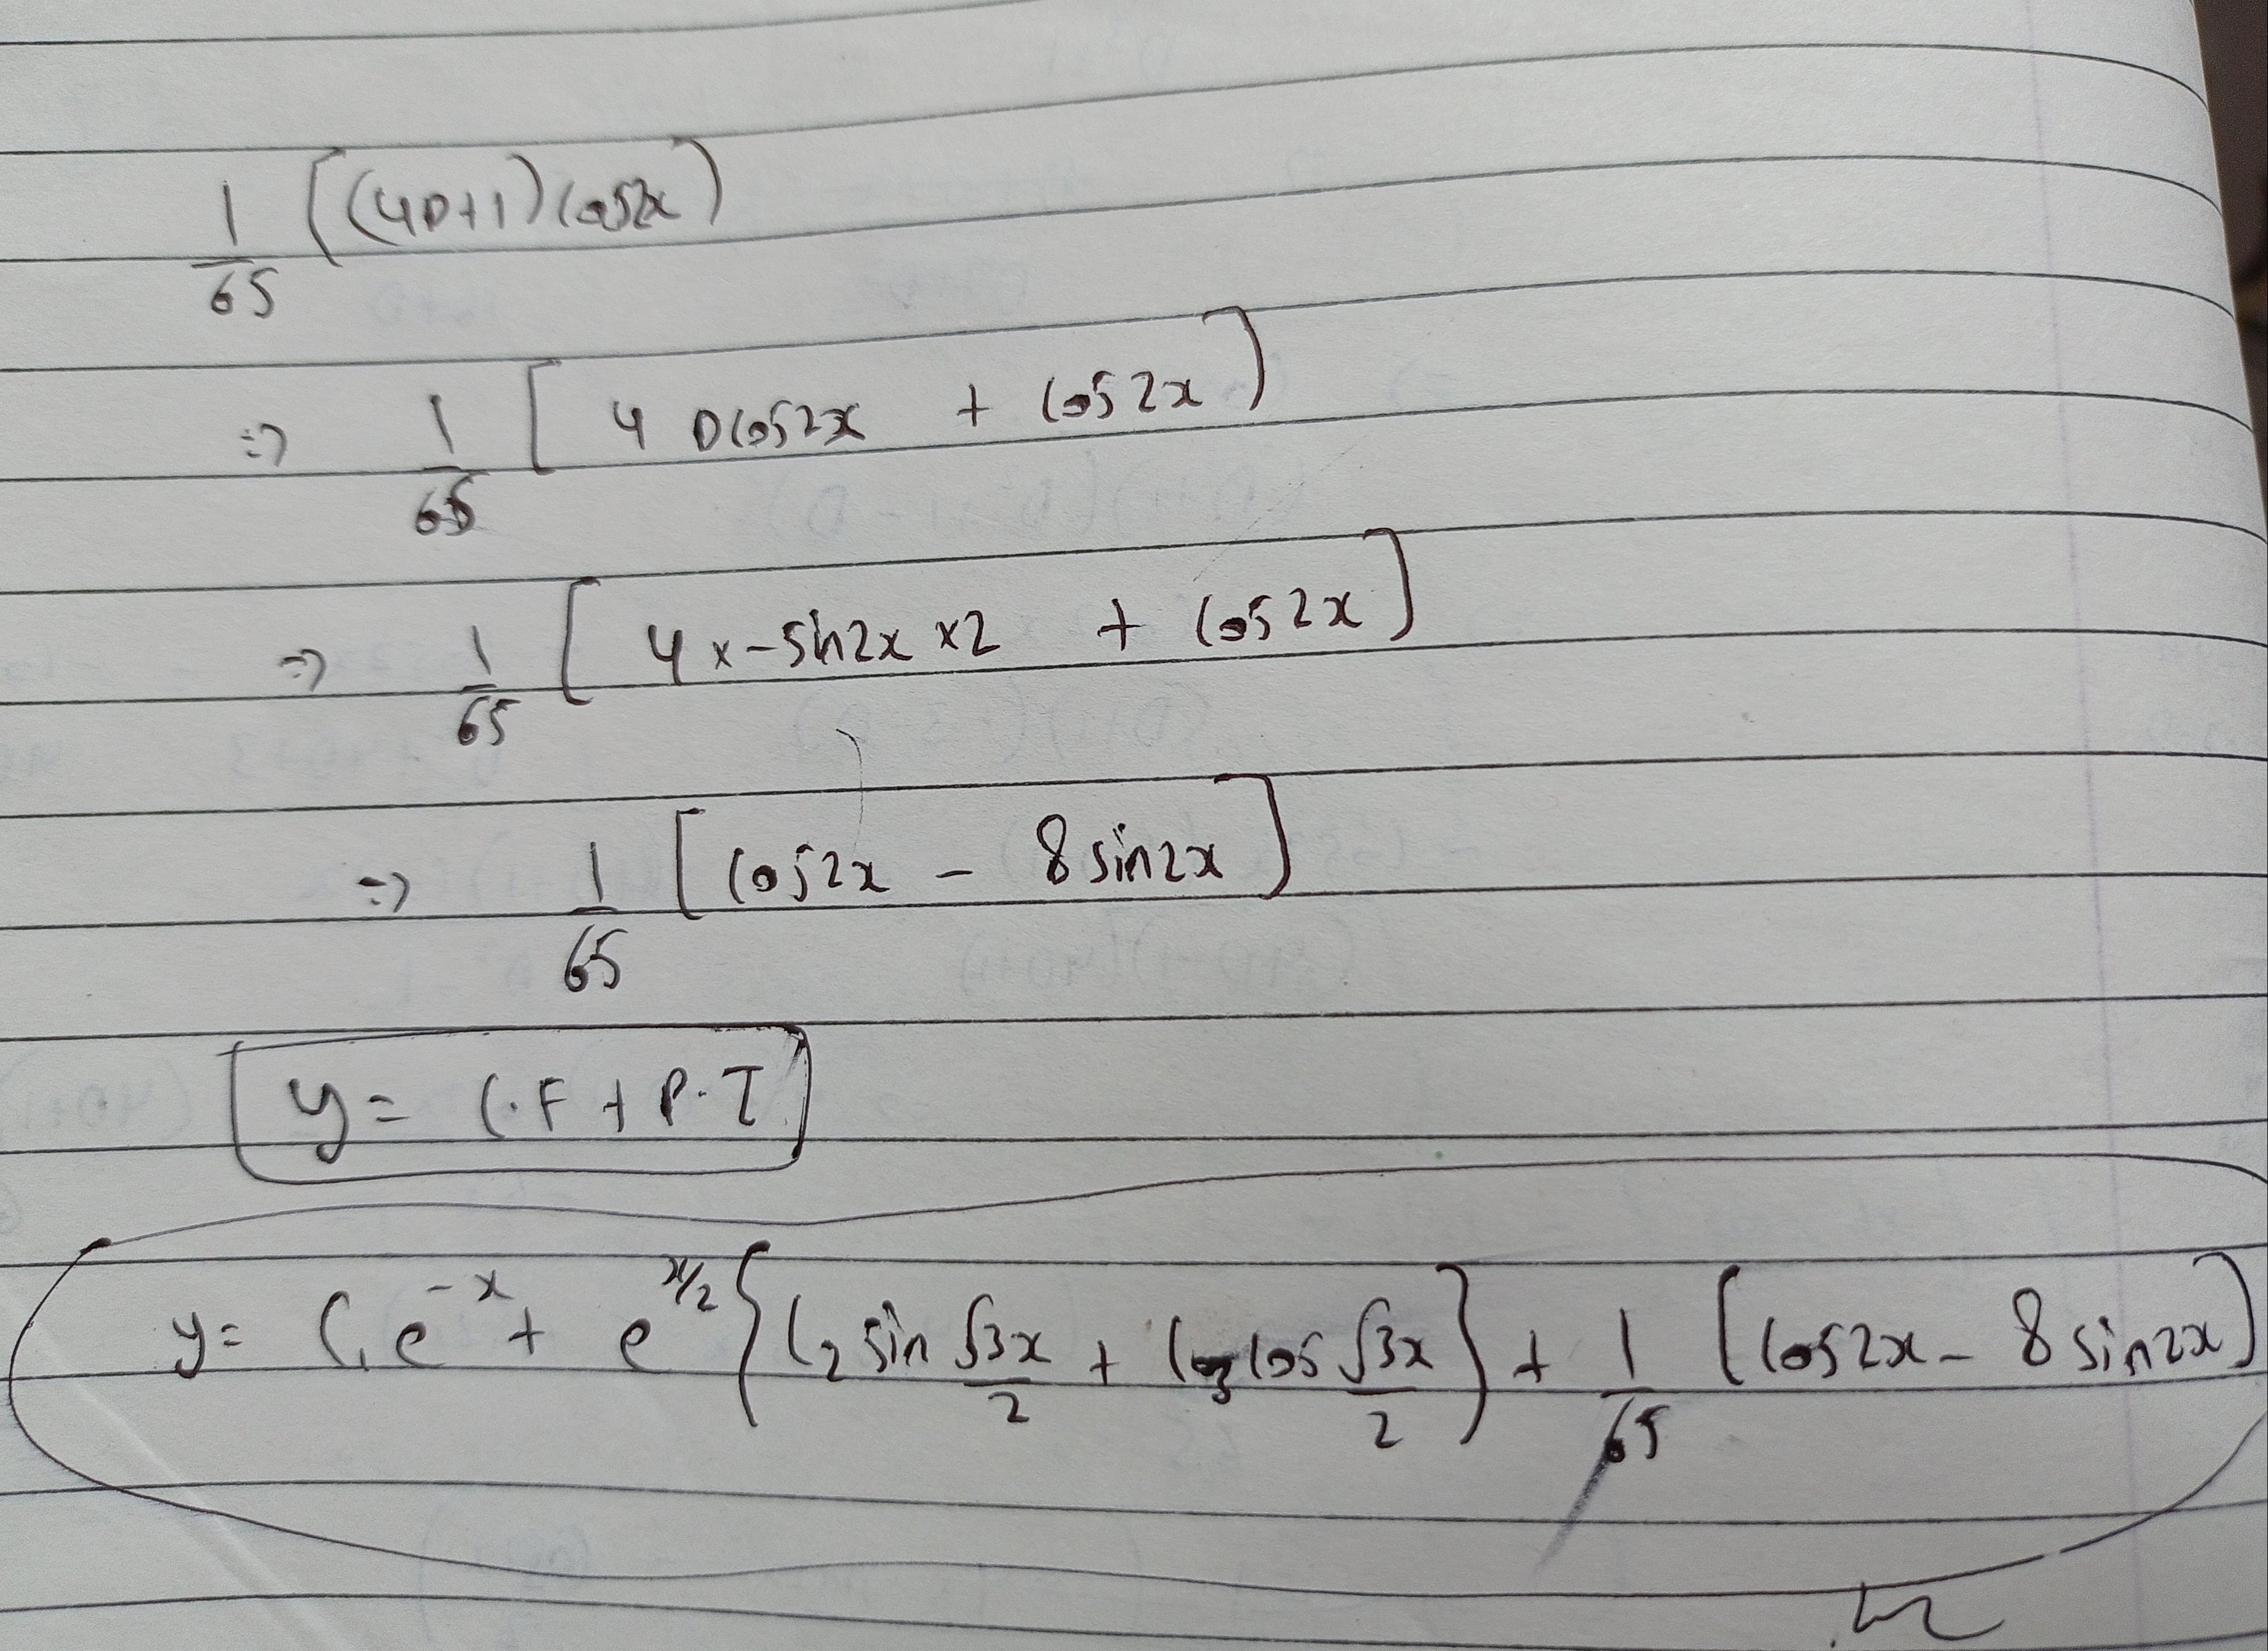 1/65 [(4D+1) cos2x]
=> 1/65 [4 Dcos2x + cos2x]
=> 1/65 [4 x -sin2x x2 + cos2x]
=> 1/65 [cos2x - 8 sin2x]
y = C.F + P.I
y = C₁e^(-x) + e^(x/2) {C₂ sin √3x/2 + C₃ cos √3x/2} + 1/65 [cos2x - 8 sin2x]